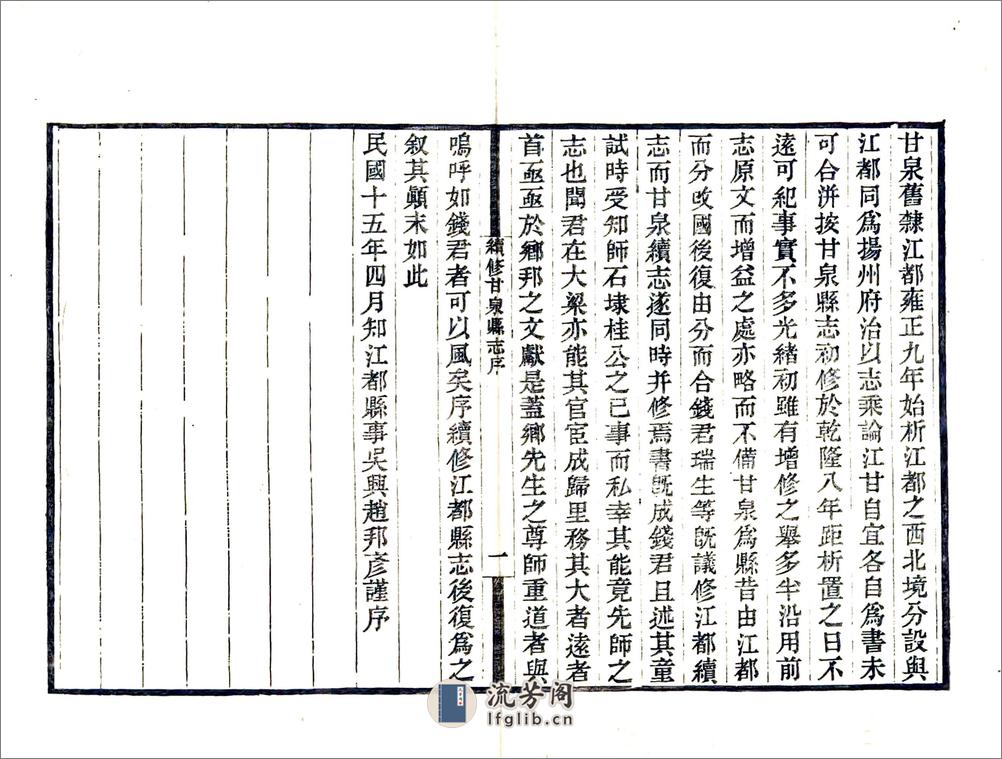 甘泉舊隸江都雍正九年始析江都之西北境分設與
江都同爲揚州府治以志乘論江甘自宜各自爲書未
可合併按甘泉縣志初修於乾隆八年距析置之日不
遠可紀事實不多光緒初雖有增修之舉多半沿用前
志原文而增益之處亦略而不備甘泉爲縣昔由江都
而分改國後復由分而合錢君瑞生等旣議修江都續
志而甘泉續志遂同時并修焉書旣成錢君且述其童
試時受知師石埭桂公之已事而私幸其能竟先師之
志也聞君在大梁亦能其官宦成歸里務其大者遠者
首亟亟於鄉邦之文獻是蓋鄉先生之尊師重道者與
續修甘泉縣志序
一
嗚呼如錢君者可以風矣序續修江都縣志後復爲之
叙其顚末如此
民國十五年四月知江都縣事吳興趙邦彥謹序
流芳阁
lfglib.cn